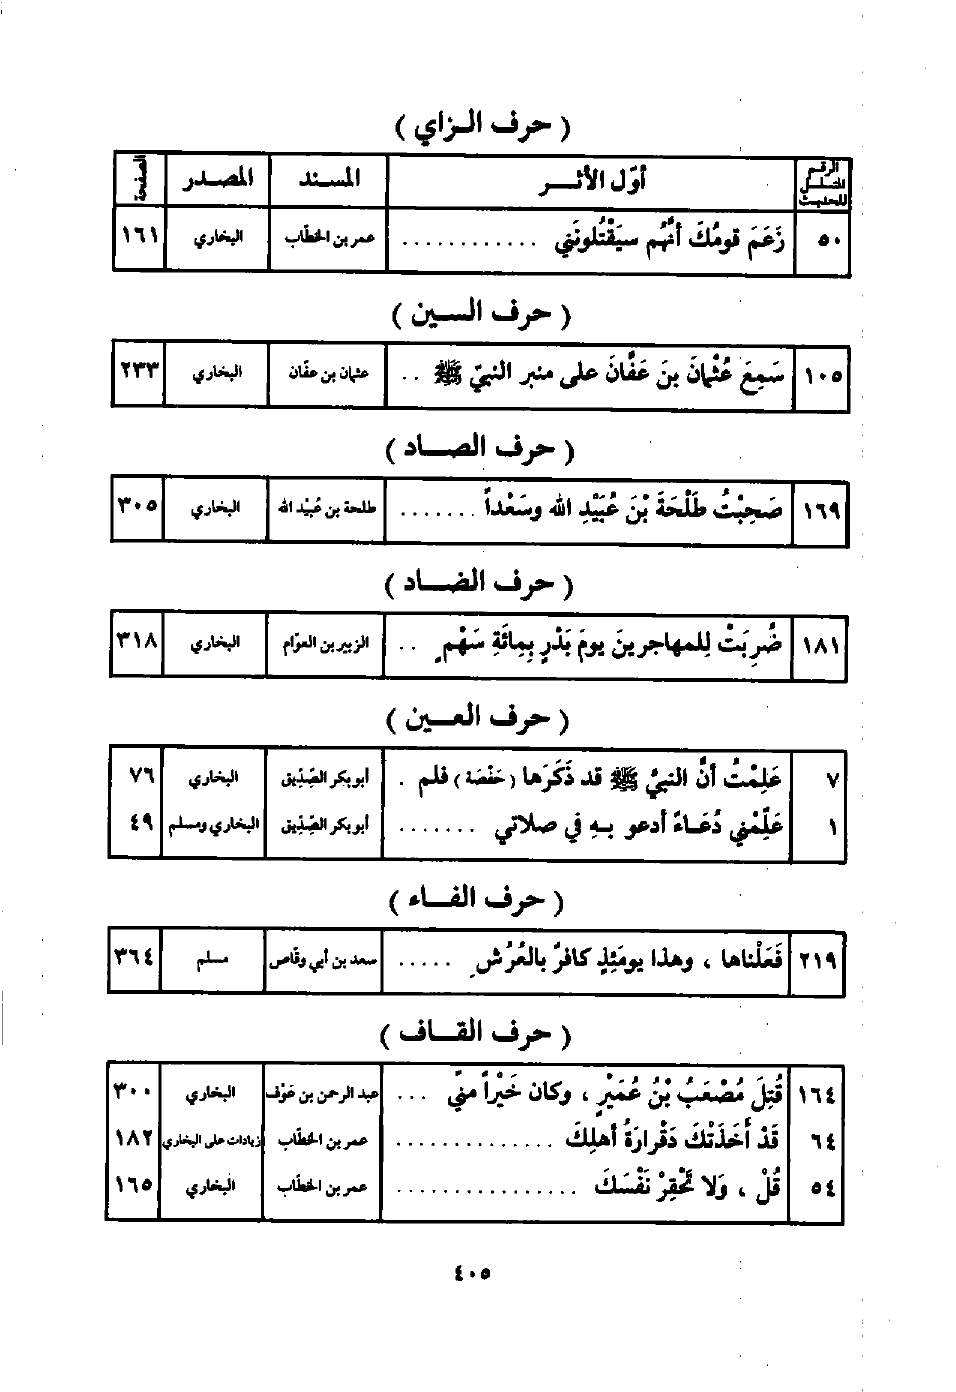 ( حرف الـزاي )
الرقم المتسلسل للحديث أوّل الأثـــر المسـند المصـدر الصفحة
٥٠ زَعَمَ قومُكَ أنَّهُم سيَقْتُلونَني . . . . . . . . . . . . عمر بن الخطّاب البخاري ١٦١
( حرف السـين )
١٠٥ سَمِعَ عُثْمانَ بنَ عَفَّانَ على منبر النبيّ ﷺ . . عثمان بن عفّان البخاري ٢٣٣
( حرف الصـــاد )
١٦٩ صَحِبْتُ طَلْحَةَ بْنَ عُبَيْدِ الله وسَعْداً . . . . . . . طلحة بن عُبَيْد الله البخاري ٣٠٥
( حرف الضـــاد )
١٨١ ضُرِبَتْ لِلمهاجرينَ يومَ بَدْرٍ بِمِائَةِ سَهْمٍ . . الزبير بن العوّام البخاري ٣١٨
( حرف العـــين )
٧ عَلِمْتُ أنَّ النبيَّ ﷺ قد ذَكَرَها (حَفْصَة) فلم . أبو بكر الصّدِّيق البخاري ٧٦
١ عَلِّمْني دُعَــاءً أدعو بــهِ في صلاتي . . . . . . . أبو بكر الصّدِّيق البخاري ومسلم ٤٩
( حرف الفـــاء )
٢١٩ فَعَلْناها ، وهذا يومَئِذٍ كافرٌ بالعُرُشِ . . . . . سعد بن أبي وقّاص مسلم ٣٦٤
( حرف القـــاف )
١٦٤ قُتِلَ مُصْعَبُ بْنُ عُمَيْرٍ ، وكان خَيْراً منّي . . . عبد الرحمن بن عَوْف البخاري ٣٠٠
٦٤ قَدْ أَخَذَتْكَ دَقْرارَةُ أهلِكَ . . . . . . . . . . . . . . عمر بن الخطّاب زيادات على البخاري ١٨٢
٥٤ قُلْ ، وَلا تَحْقِرْ نَفْسَكَ . . . . . . . . . . . . . . . . عمر بن الخطّاب البخاري ١٦٥
٤٠٥